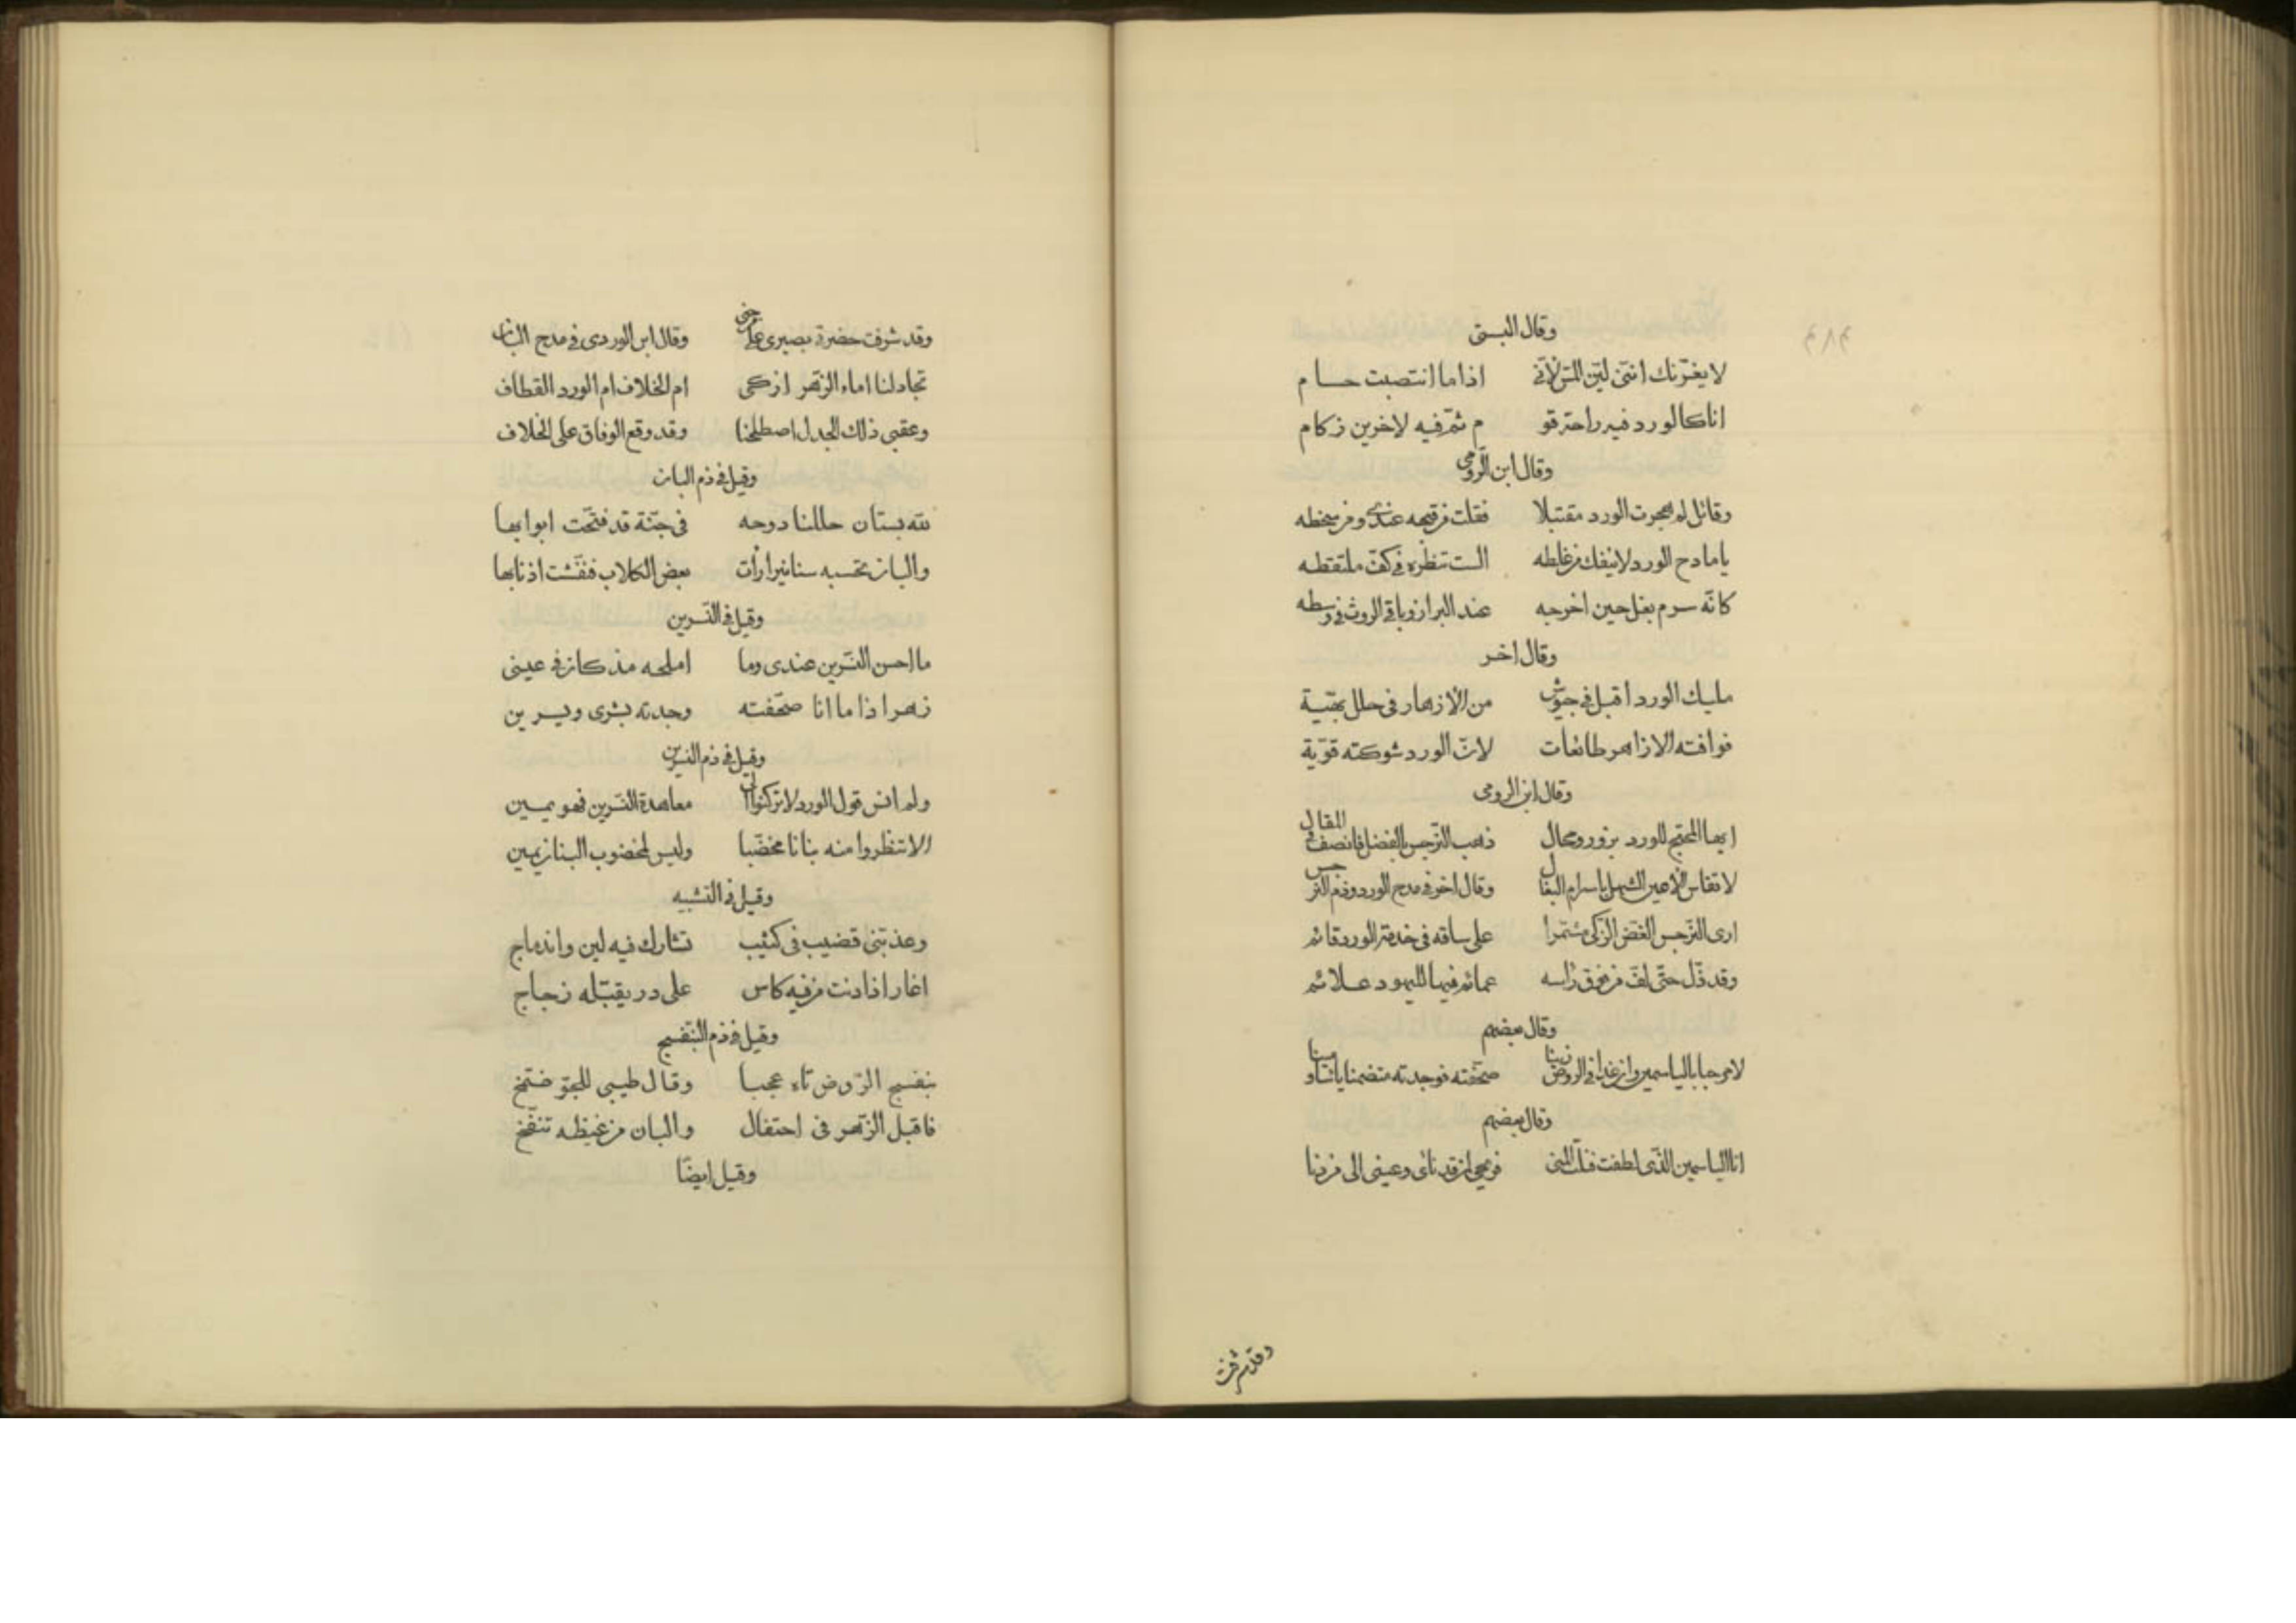 وقال البستى
لا يغرّنك انّنى ليّن المسّ لأنّى اذا ما انتصبت حسام
انا كالورد فيه راحة قو م ثمّ فيه لاخرين زكام
وقال ابن الرّومى
وقائل لم هجرت الورد مقتبلا فقلت من قبحه عندى ومن سخطه
يا مادح الورد لا ينفك من غلطه الست تنظره فى كفّ ملتقطه
كانّه سرم بغل حين اخرجه عند البراز وباقى الروث فى وسطه
وقال اخر
مليك الورد اقبل فى جيوش من الازهار فى حلل بهيّة
فوافته الازاهر طائعات لانّ الورد شوكته قويّة
وقال ابن الرومى
ايها المحتج للورد بزور ومحال ذهب النّرجس بالفضل فانصف فى المقال
لا تقاس الاعين النّجل باسرام البغال وقال اخر فى مدح الورد وذم النرجس
ارى النّرجس الغضّ الزّكى مشمّرا على ساقه فى خدمة الورد قائم
وقد ذلّ حتّى لفّ من فوق رأسه عمائم فيها لليهود علائم
وقال بعضهم
لا مرحبا بالياسمين وان غدا فى الروض زينا صحّفته فوجدته متضمنا ياسا ومينا
وقال بعضهم
انا الياسمين الذّى لطفت فنلت المنى فريحى لمن قد نائ وعينى الى من دنا
وقد شرفت
وقد شرفت حضرة بصيرى على وقال ابن الوردى فى مدح البان
تجادلنا اماء الزّهر ازكى ام الخلاف ام الورد القطاف
وعقبى ذلك الجدل اصطلحنا وقد وقع الوفاق على الخلاف
وقيل فى ذم البان
لله بستان حللنا دوحه فى جنّة قد فتّحت ابوابها
والبان تحسبه سنانيرا رأت بعض الكلاب فنفّشت اذنابها
وقيل فى النّسرين
ما احسن النّسرين عندى وما املحه مذ كان فى عينى
زهر اذا ما انا صحّفته وجدته بشرى ويسرين
وقيل فى ذم النسرين
ولم انس قول الورد لا تركنوا الى معاهدة النّسرين فهو يمين
الا تنظروا منه بنانا مخضّبا وليس لمخضوب البنان يمين
وقيل فى التشبيه
وعذبتنى قضيب فى كثيب تشارك فيه لين واندماج
اغار اذا دنت من فيه كاس على در يقبّله زجاج
وقيل فى ذم البنفسج
بنفسج الرّوض تاه عجبا وقال طيبى للجوّ ضمّخ
فاقبل الزّهر فى احتفال والبان من غيظه تنفّخ
وقيل ايضًا